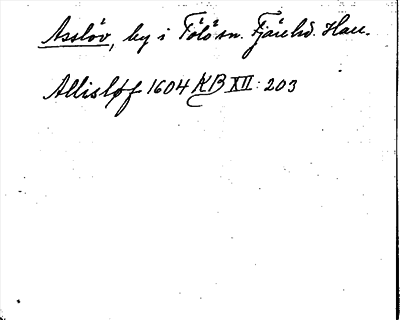 Assløv, by i Tölö sn. Fjäre hd. Hall.
Allisløf 1604 KB XII: 203